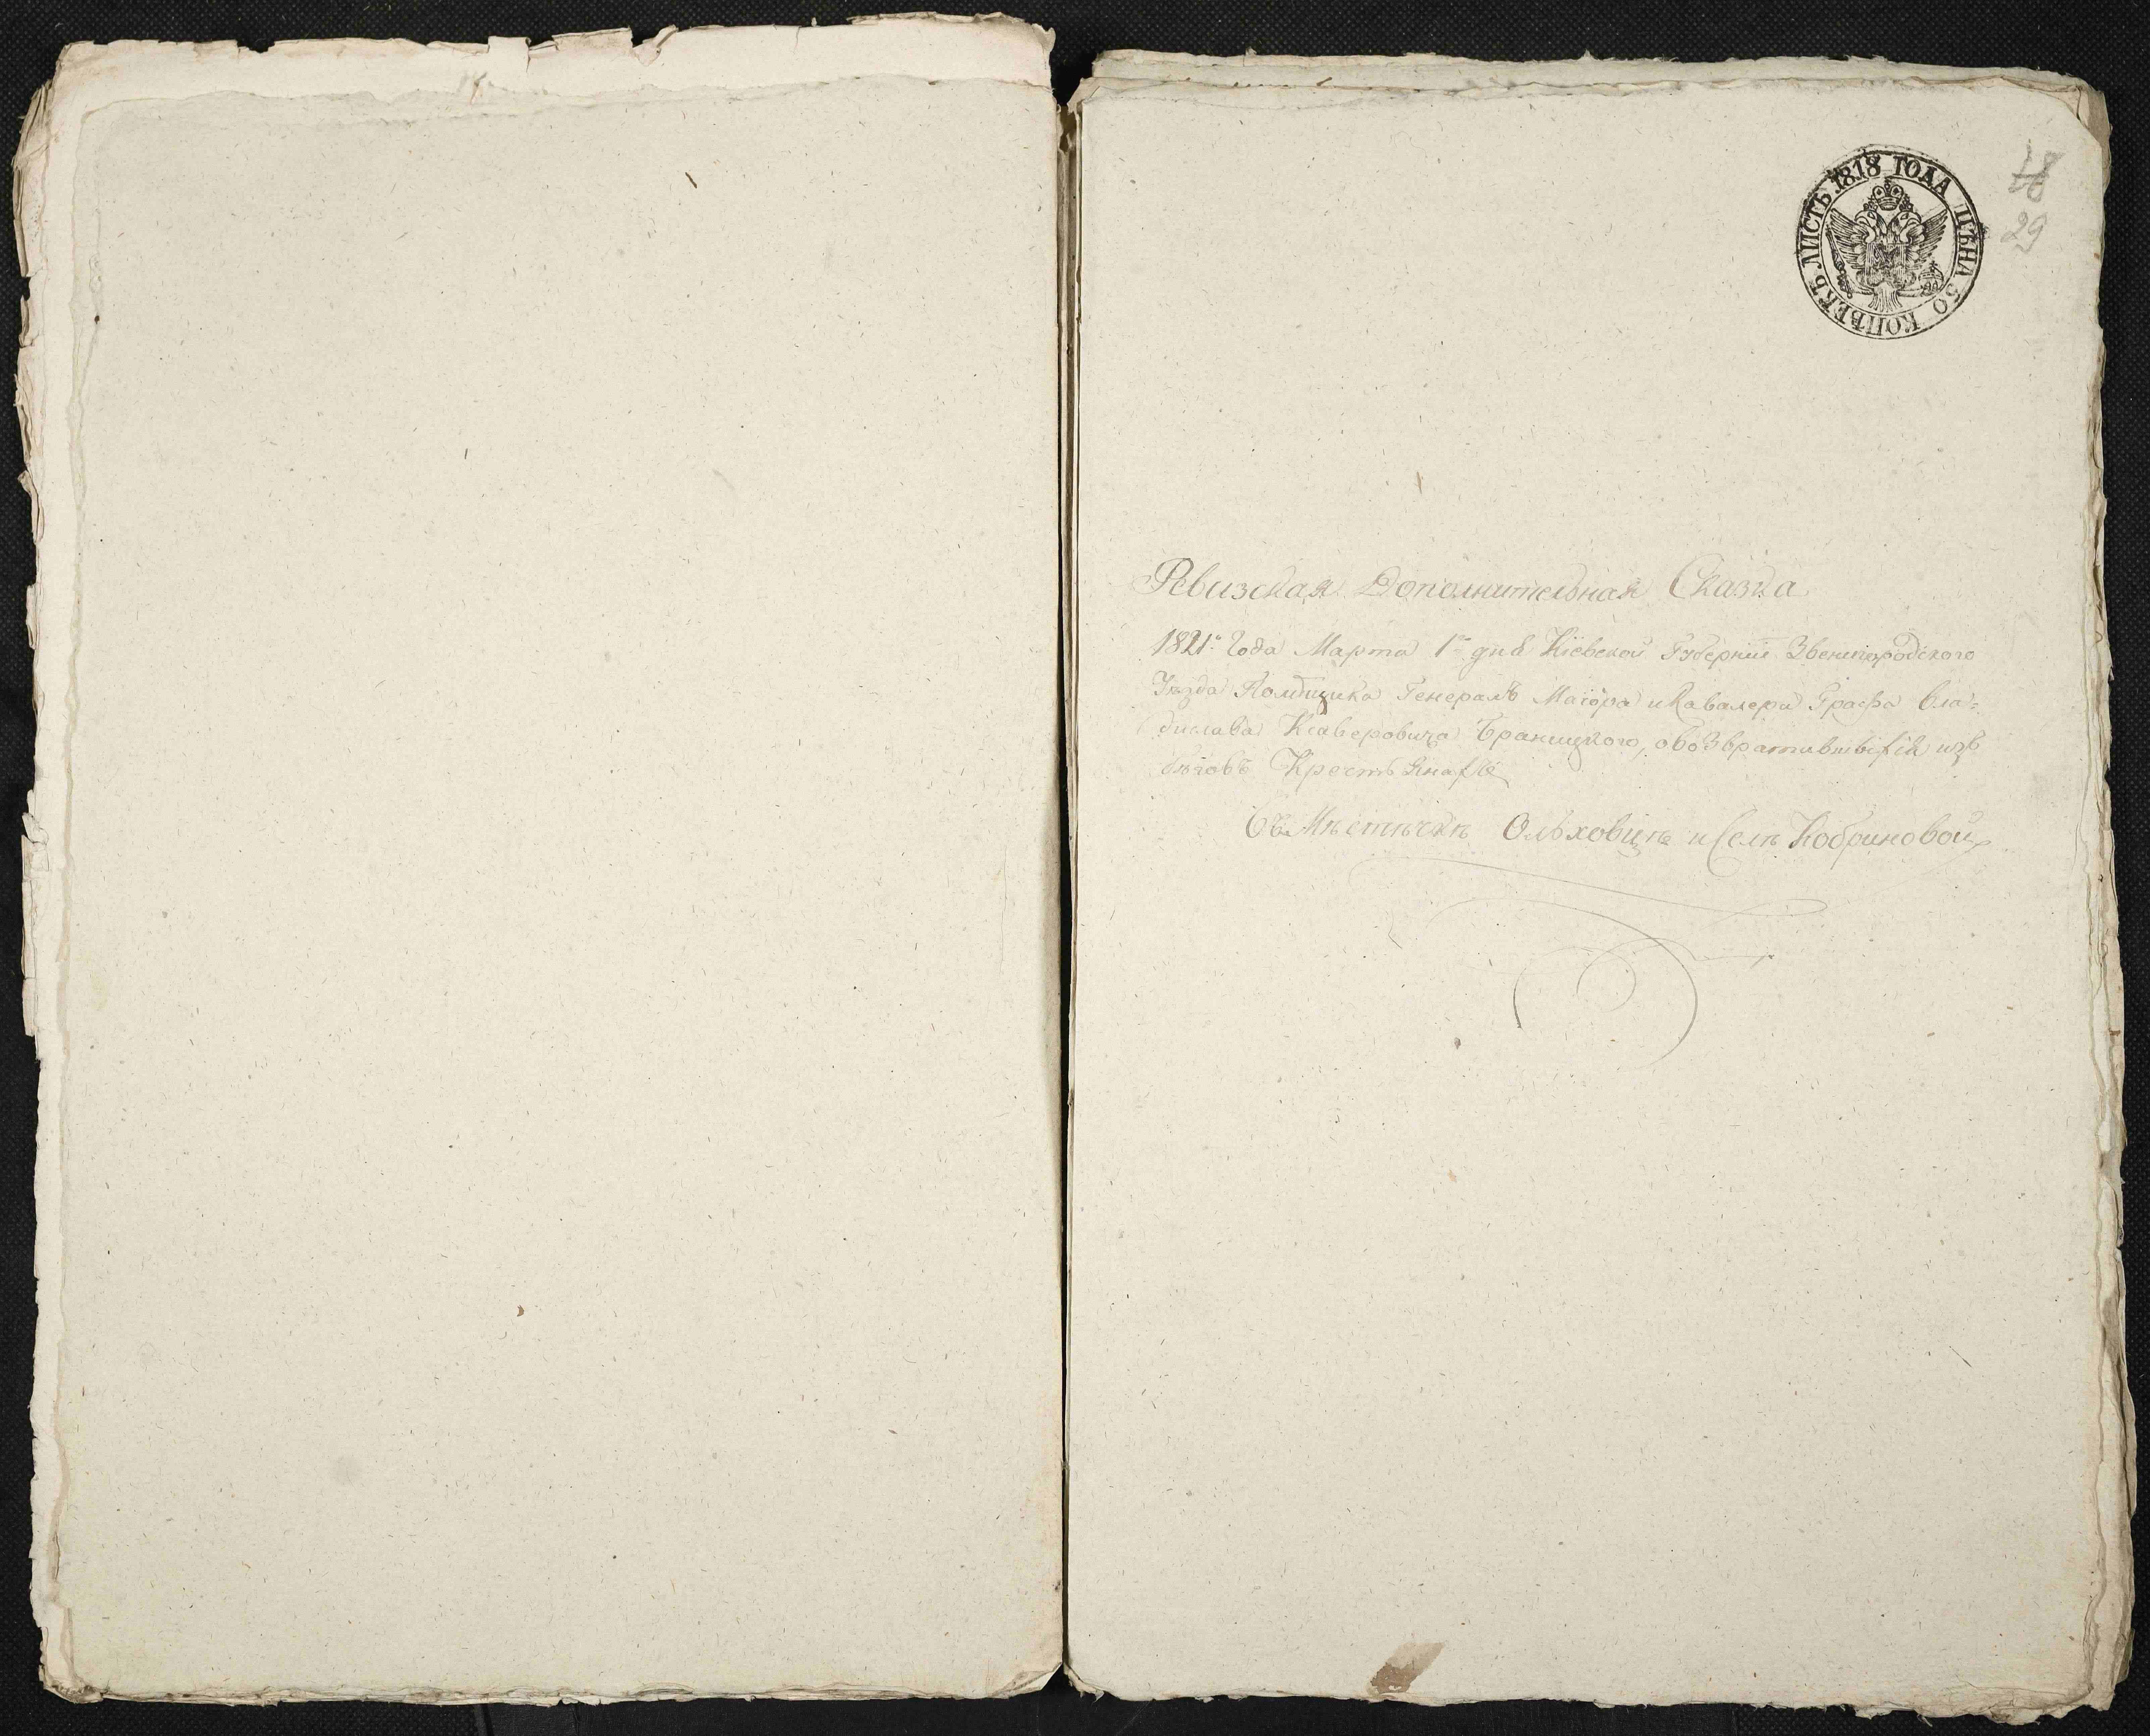 ЛИСТЪ 1818 ГОДА ЦѢНА 50 КОПѢЕКЪ
48
29
Ревизская Дополнительная Сказка
1821го Года Марта 1го дня Кіевской Губерніи Звенигородского
Уѣзда Помѣщика Генералъ Маіора и Кавалера Графа Вла=
дислава Ксаверовича Браницкого, овозвратившихся изъ
бѣговъ Крестьянахъ
Въ Мѣстѣчкѣ Ольховцѣ и Селѣ Кобриновой